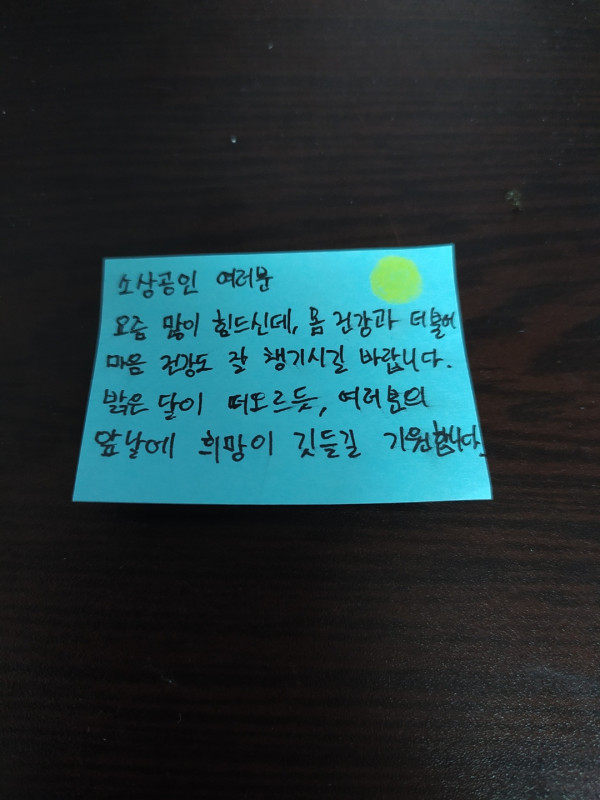 소상공인 여러분
요즘 많이 힘드신데, 몸 건강과 더불어
마음 건강도 잘 챙기시길 바랍니다.
밝은 달이 떠오르듯, 여러분의
앞날에 희망이 깃들길 기원합니다.